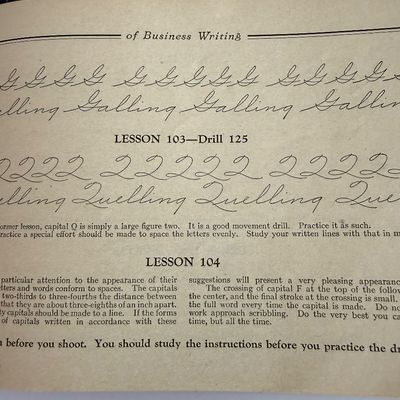 of Business Writing
G G G G G G G G G G G G G
Galling Galling Galling
LESSON 103—Drill 125
2 2 2 2 2 2 2 2 2 2 2 2 2
Quelling Quelling
former lesson, capital Q is simply a large figure two. It is a good movement drill. Practice it as such.
practice a special effort should be made to space the letters evenly. Study your written lines with that in
LESSON 104
particular attention to the appearance of their
letters and words conform to spaces. The capitals
two-thirds to three-fourths the distance between
that they are about three-eighths of an inch apart.
capitals should be made to a line. If the forms
of capitals written in accordance with these
suggestions will present a very pleasing appearance.
The crossing of capital F at the top of the
the center, and the final stroke at the crossing is small.
the full word every time the capital is made. Do
work approach scribbling. Do the very best you
time, but all the time.
before you shoot. You should study the instructions before you practice the